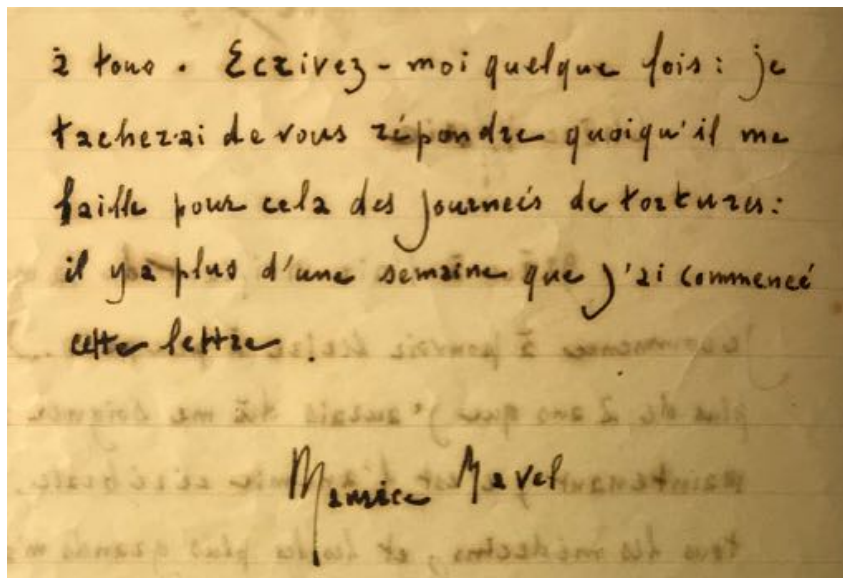 à tous. Ecrivez-moi quelque fois : je
tacherai de vous répondre quoiqu'il me
faille pour cela des journeés de tortures :
il y a plus d'une semaine que j'ai commencé
cette lettre.
Maurice Ravel